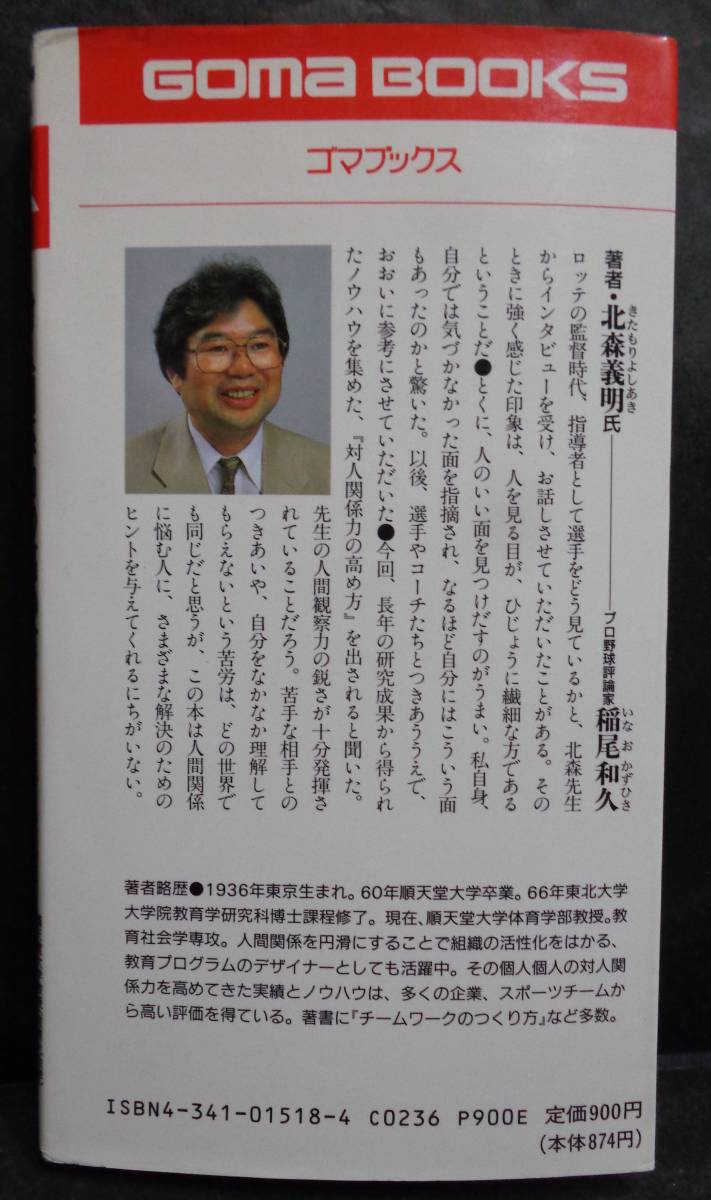 GOMA BOOKS
ゴマブックス
著者・北森義明氏―――プロ野球評論家 稲尾和久
きたもりよしあき
いなおかずひさ
ロッテの監督時代、指導者として選手をどう見ているかと、北森先生
からインタビューを受け、お話しさせていただいたことがある。その
ときに強く感じた印象は、人を見る目が、ひじょうに繊細な方である
ということだ●とくに、人のいい面を見つけだすのがうまい。私自身、
自分では気づかなかった面を指摘され、なるほど自分にはこういう面
もあったのかと驚いた。以後、選手やコーチたちとつきあううえで、
おおいに参考にさせていただいた●今回、長年の研究成果から得られ
たノウハウを集めた、『対人関係力の高め方』を出されると聞いた。
先生の人間観察力の鋭さが十分発揮さ
れていることだろう。苦手な相手との
つきあいや、自分をなかなか理解して
もらえないという苦労は、どの世界で
も同じだと思うが、この本は人間関係
に悩む人に、さまざまな解決のための
ヒントを与えてくれるにちがいない。
著者略歴●1936年東京生まれ。60年順天堂大学卒業。66年東北大学
大学院教育学研究科博士課程修了。現在、順天堂大学体育学部教授。教
育社会学専攻。人間関係を円滑にすることで組織の活性化をはかる、
教育プログラムのデザイナーとしても活躍中。その個人個人の対人関
係力を高めてきた実績とノウハウは、多くの企業、スポーツチームか
ら高い評価を得ている。著書に『チームワークのつくり方』など多数。
ISBN4-341-01518-4 C0236 P900E 定価900円
(本体874円)